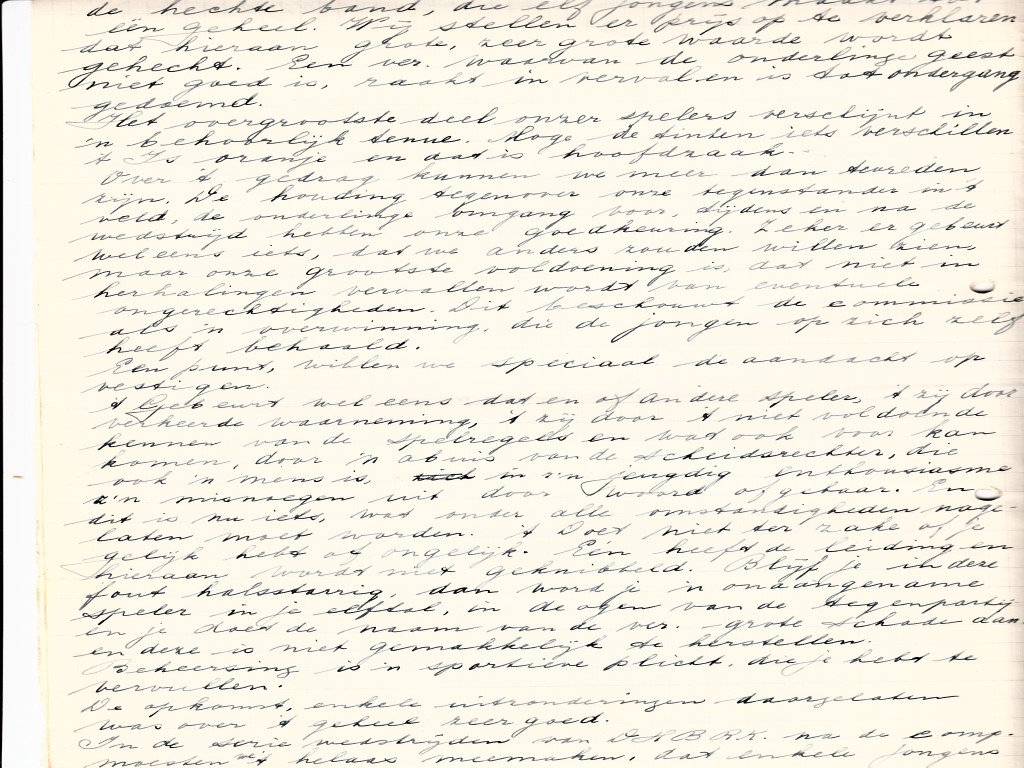 de hechte band, die elf jongens maakt tot
één geheel. Wij stellen er prijs op te verklaren
dat hieraan grote, zeer grote waarde wordt
gehecht. Een ver. waarvan de onderlinge geest
niet goed is, raakt in verval en is tot ondergang
gedoemd.
Het overgrootste deel onzer spelers verschijnt in
'n behoorlijk tenue. Moge de tinten iets verschillen
't Is oranje en dat is hoofdzaak.
Over 't gedrag kunnen we meer dan tevreden
zijn. De houding tegenover onze tegenstander in 't
veld, de onderlinge omgang voor, tijdens en na de
wedstrijd hebben onze goedkeuring. Zeker er gebeurt
wel eens iets, dat we anders zouden willen zien,
maar onze grootste voldoening is, dat niet in
herhalingen vervallen wordt van eventuele
ongerechtigheden. Dit beschouwt de commissie
als 'n overwinning, die de jongen op zich zelf
heeft behaald.
Een punt, willen we speciaal de aandacht op
vestigen.
't Gebeurt wel eens dat en of andere speler, 't zij door
verkeerde waarneming, 't zij door 't niet voldoende
kennen van de spelregels en wat ook voor kan
komen, door 'n abuis van de scheidsrechter, die
ook 'n mens is, in z'n jeugdig enthousiasme
z'n misnoegen uit door woord of gebaar. En
dit is nu iets, wat onder alle omstandigheden nage-
laten moet worden. 't Doet niet ter zake of je
gelijk hebt of ongelijk. Eén heeft de leiding en
hieraan wordt niet geknibbeld. Blijf je in deze
fout halsstarrig, dan word je 'n onaangename
speler in je elftal, in de ogen van de tegenpartij
en je doet de naam van de ver. grote schade aan
en deze is niet gemakkelijk te herstellen.
Beheersing is 'n sportieve plicht, die je hebt te
vervullen.
De opkomst, enkele uitzonderingen daargelaten
was over 't geheel zeer goed.
In de serie wedstrijden van na de comp.
moesten we 't helaas meemaken, dat enkele jongens